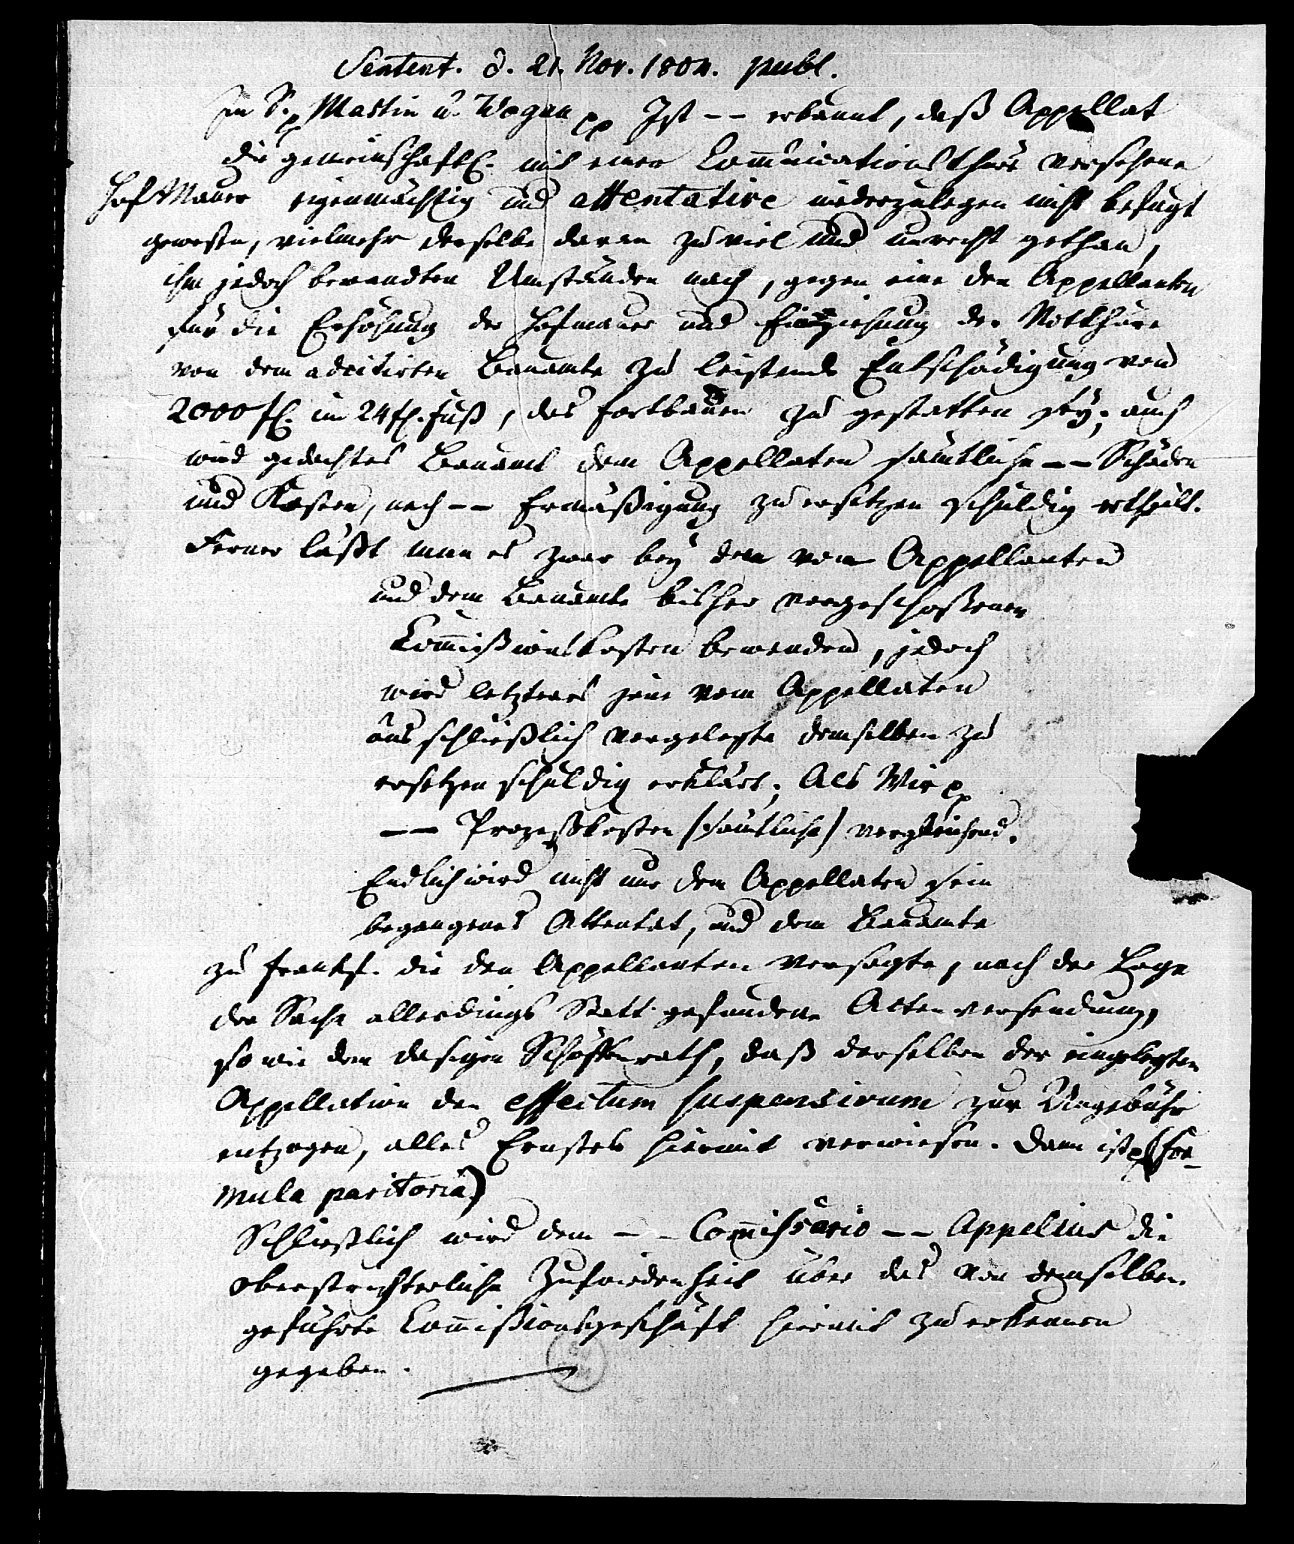 Sentent. d. 21. Nov. 1804. publ.
In S. p Martin u. Wegen pp Ist -- erkannt, daß Appellat
die gemeinschaftl. mit einer Communicationsthür versehene
Hof Mauer eigenmächtig und attentative niederzulegen nicht befugt
gewesen, vielmehr derselbe daran zu viel und unrecht gethan,
ihm jedoch bewandten Umständen nach, gegen eine den Appellanten
für die Erhöhung der Hofmauer und Einziehung der Noththüre
von dem adcitirten Bauamte zu leistende Entschädigung von
2000 fl. im 24 fl. Fuß, das fortbauen zu gestatten sey; auch
wird gedachtes Bauamt dem Appellaten sämtliche -- Schäden
und Kosten, nach -- Ermäßigung zu ersetzen schuldig ertheilt.
Ferner läßt man es zwar bey den vom Appellanten
und dem Bauamte bisher vorgeschoßenen
Commißionskosten bewenden, jedoch
wird letzteres jene vom Appellaten
ausschließlich vorgelegte demselben zu
ersetzen schuldig erklärt; Als Wir pp
-- Prozeßkosten (sämtliche) vergleichend.
Endlich wird nicht nur dem Appellaten sein
begangenes Attentat, und dem Bauamte
zu Frankf. die den Appellanten versagte, nach der Lage
der Sache allerdings Statt gefundene Actenversendung,
so wie dem dasigen Schöffenrath, daß derselben der eingelegten
Appellation den effectum suspensivum zur Ungebühr
entzogen, alles Ernstes hiermit verwiesen. Dann ist p (for-
mula paritoria)
Schließlich wird dem -- Commissario -- Appelius die
oberstrichterliche Zufriedenheit über das von demselben
geführte Commißionsgeschäft hiermit zu erkennen
gegeben.